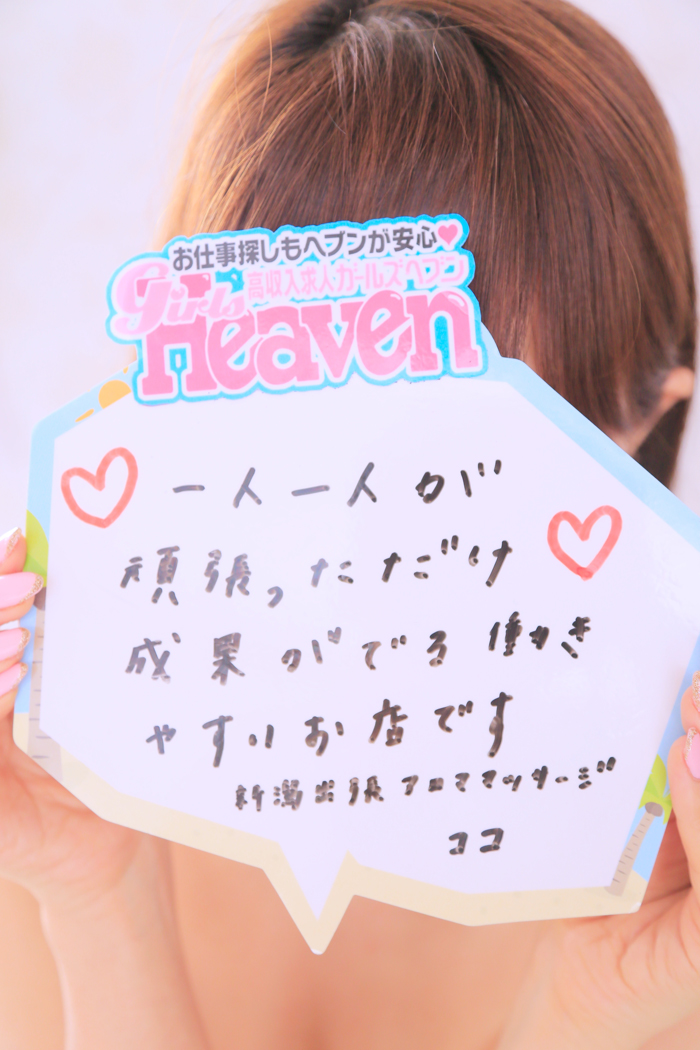 お仕事探しもヘブンが安心♥
高収入求人ガールズヘブン
Girls
Heaven
一人一人が
頑張っただけ
成果がでる働き
やすいお店です
新潟出張アロママッサージ
ココ